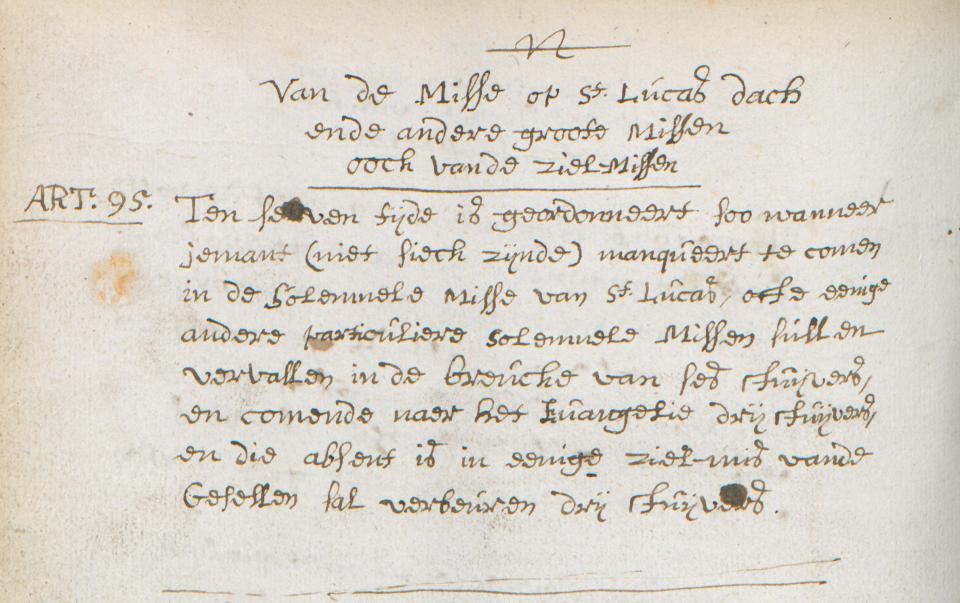 Van de Misse op St. Lucas dach
ende andere groote Missen
ooch vande ziel-Missen
ART: 95. Ten selven tijde is geordonneert soo wanneer
jemant (niet sieck zijnde) manqueert te comen
in de Solemnele Misse van St. Lucas, ofte eenige
andere particuliere Solemnele Missen sullen
vervallen in de breucke van ses stuijvers,
en comende naer het Euangelie drij stuijvers,
en die absent is in eenige ziel-mis vande
Gesellen sal verbeuren drij stuijvers.